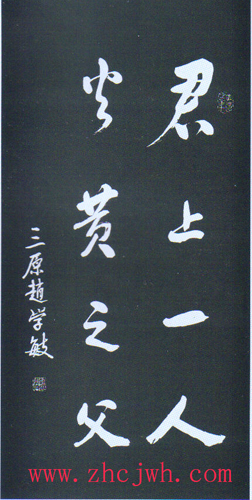 君上一人
炎黄之父
三原趙学敏
www.zhcjwh.com